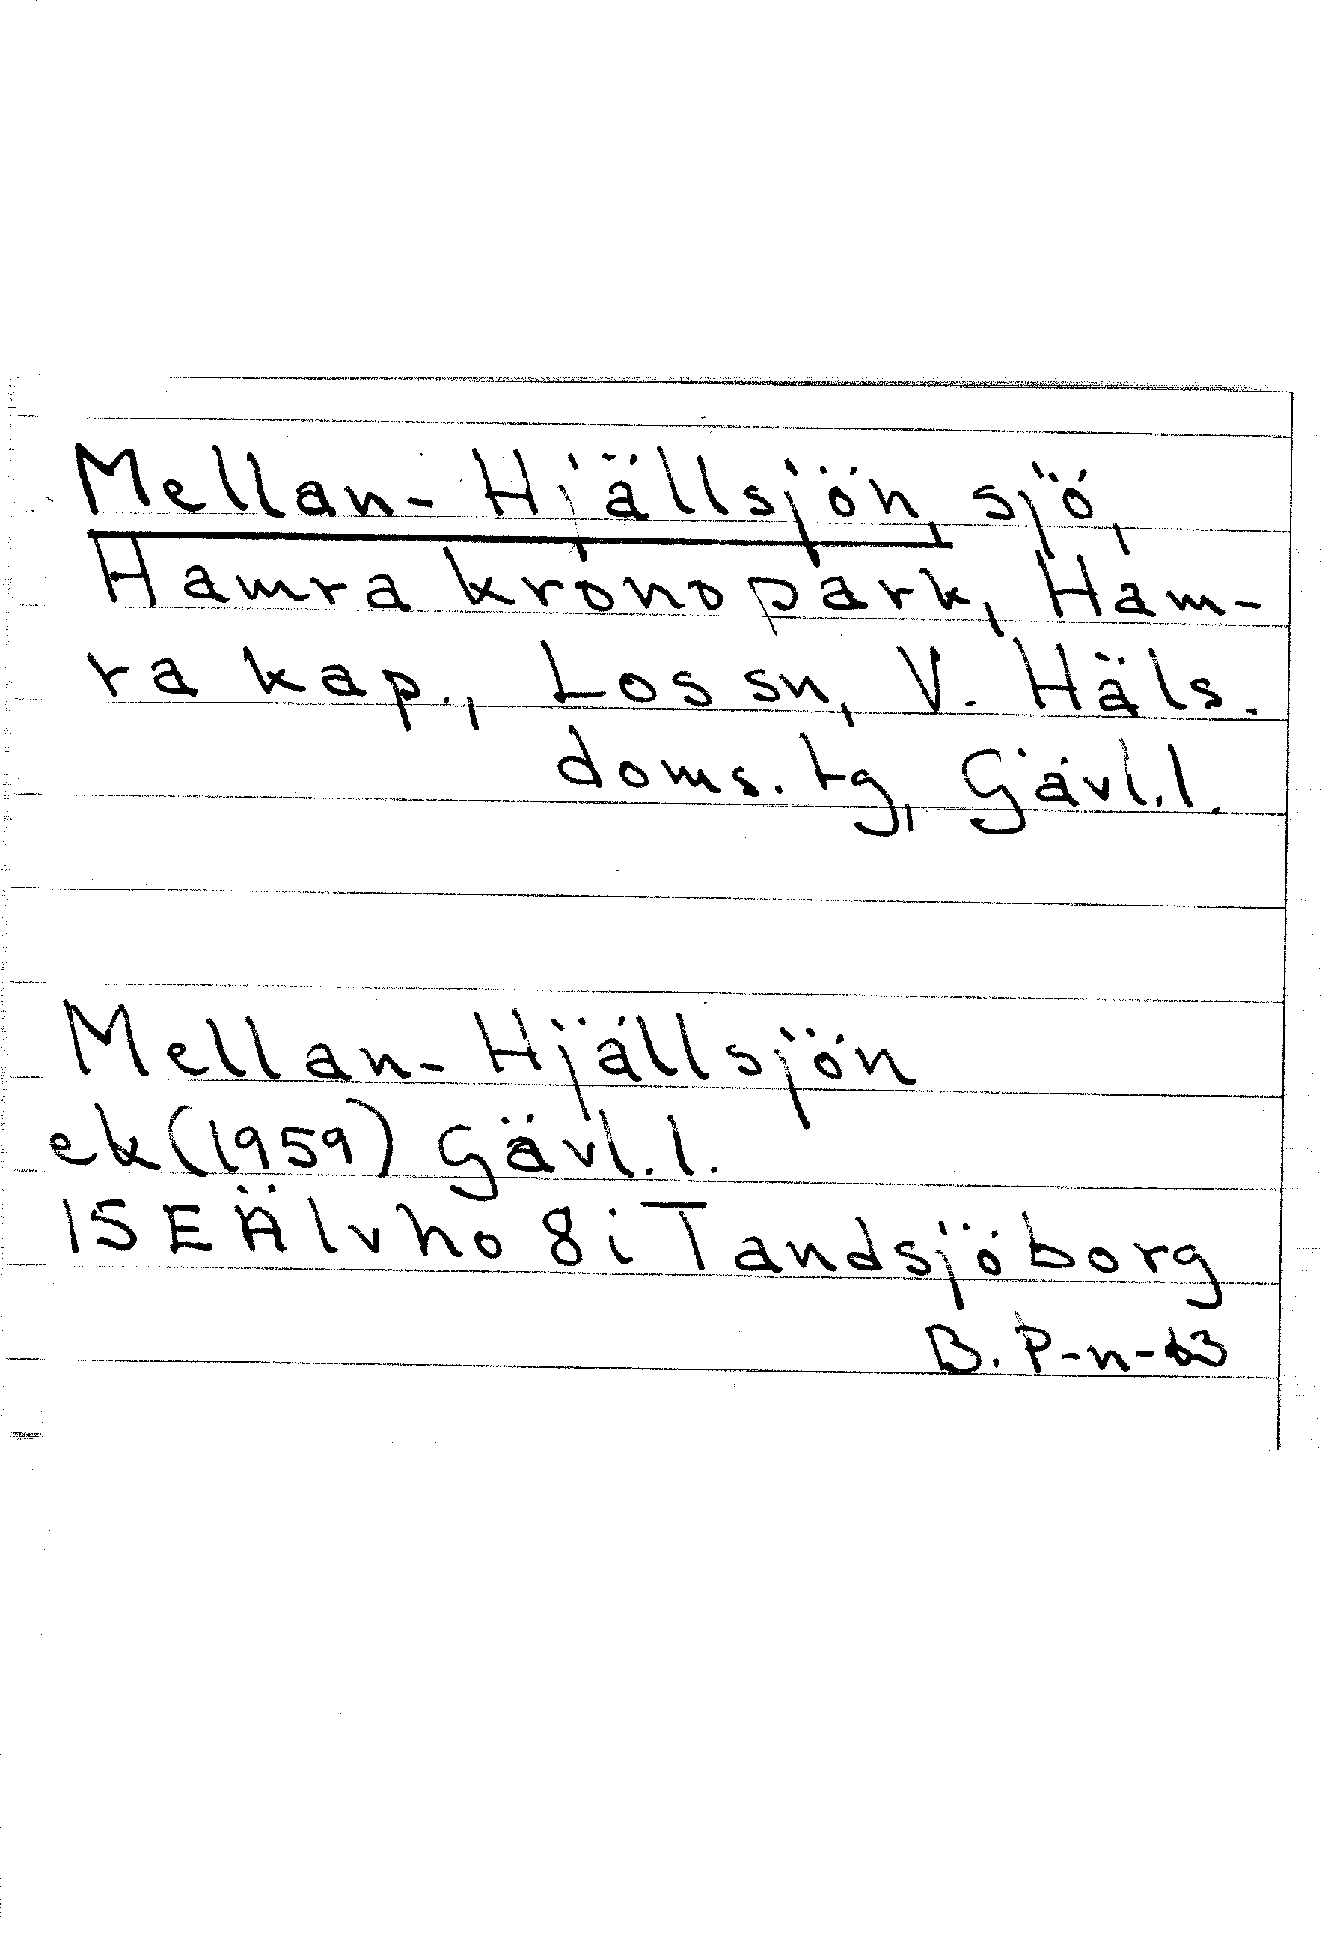 Mellan-Hjällsjön, sjö,
Hamra kronopark, Ham-
ra kap., Los sn, V. Häls.
doms. tg, Gävl.l.
Mellan-Hjällsjön
ek(1959) Gävl.l.
15E Älvho 8i Tandsjöborg
B. P-n-63